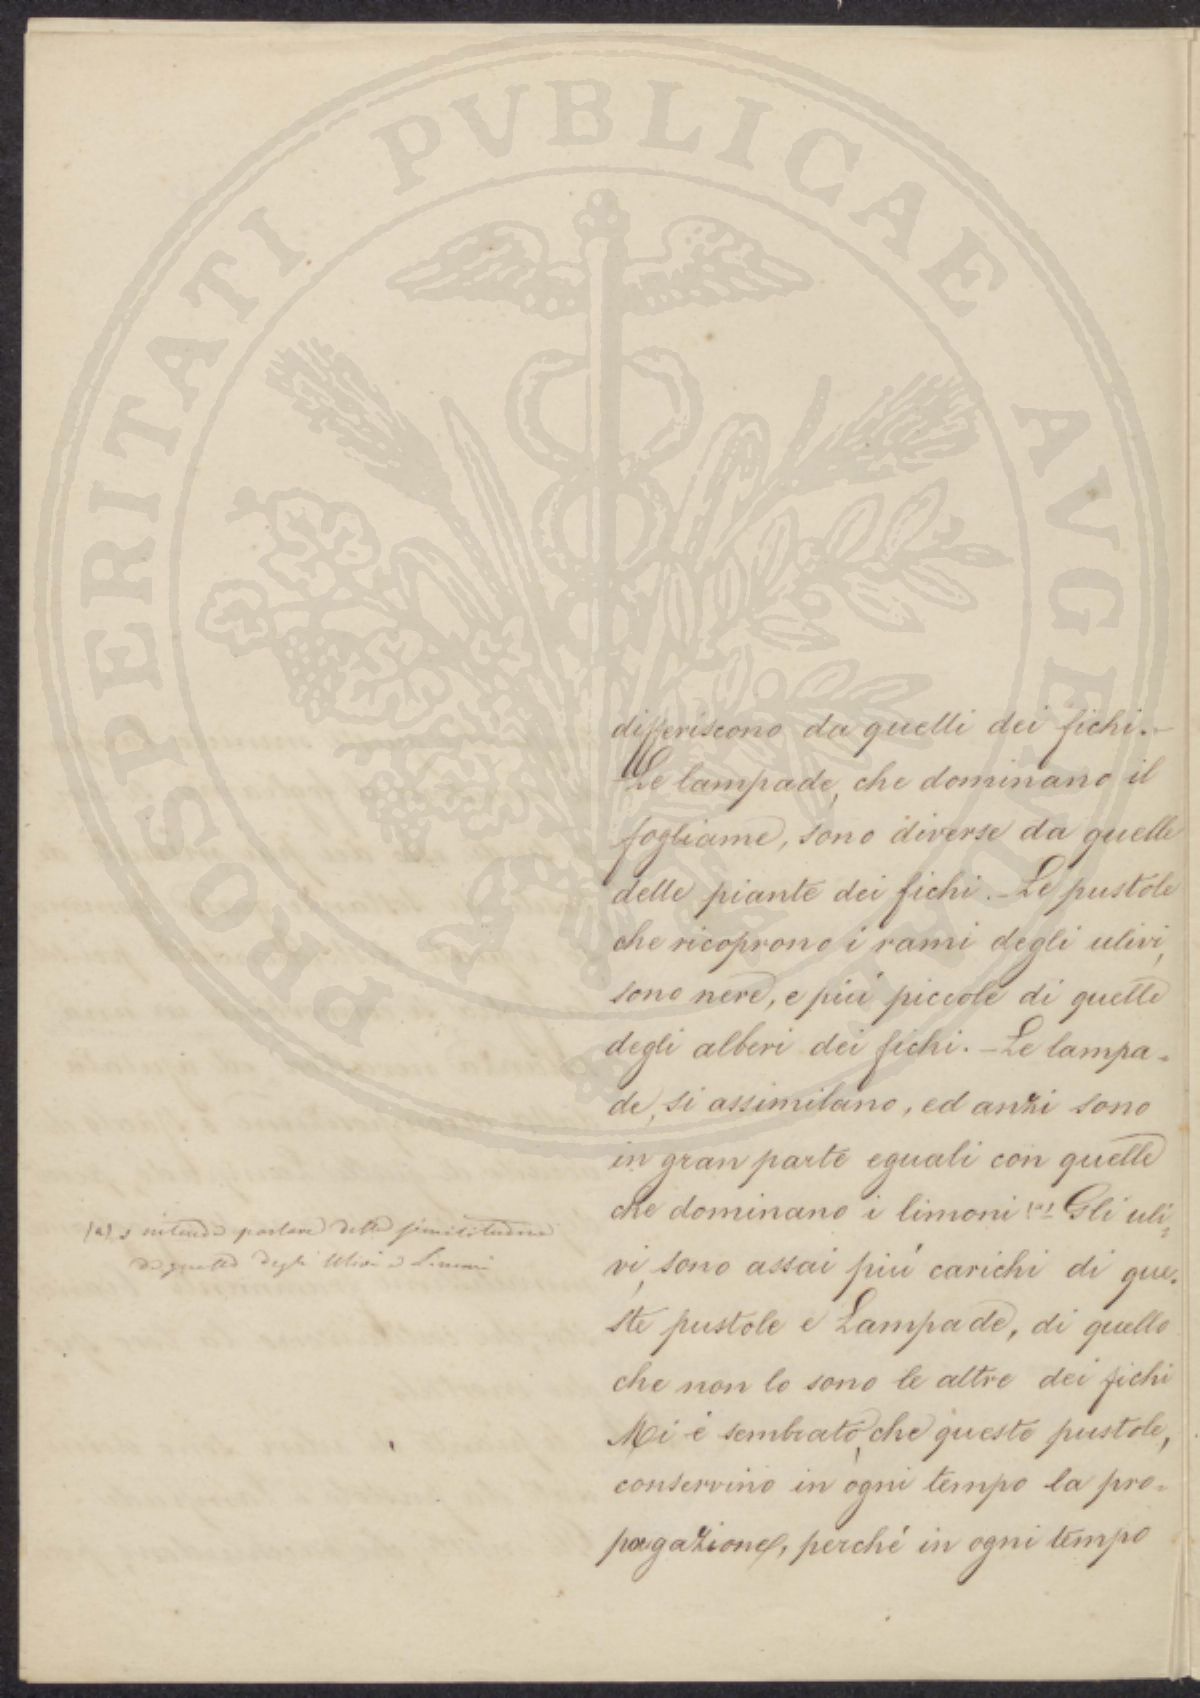 PROSPERITATI PVBLICAE AVGENDAE
differiscono da quelli dei fichi.–
Le lampade, che dominano il
fogliame, sono diverse da quelle
delle piante dei fichi.– Le pustole
che ricoprono i rami degli ulivi,
sono nere, e più piccole di quelle
degli alberi dei fichi.– Le lampa=
de, si assimilano, ed anzi sono
in gran parte eguali con quelle
che dominano i limoni (a) Gli uli=
vi, sono assai più carichi di que=
ste pustole e Lampade, di quello
che non lo sono le altre dei fichi
Mi è sembrato, che queste pustole,
conservino in ogni tempo la pro=
pagazione, perché in ogni tempo
(a) s'intende parlare della similitudine
di quelle degli Ulivi e Limoni